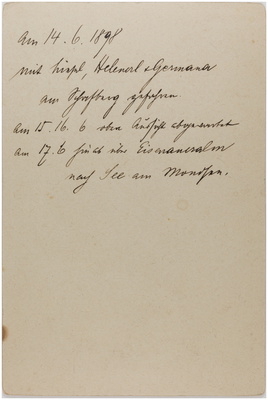 Am 14. 6. 1898
mit Liesl, Helenerl + Germana
am Schafberg gefahren
am 15. 16. 6 oben Aussicht abgewartet
am 17. 6 hinab über Eisenaueralm
nach See am Mondsee.